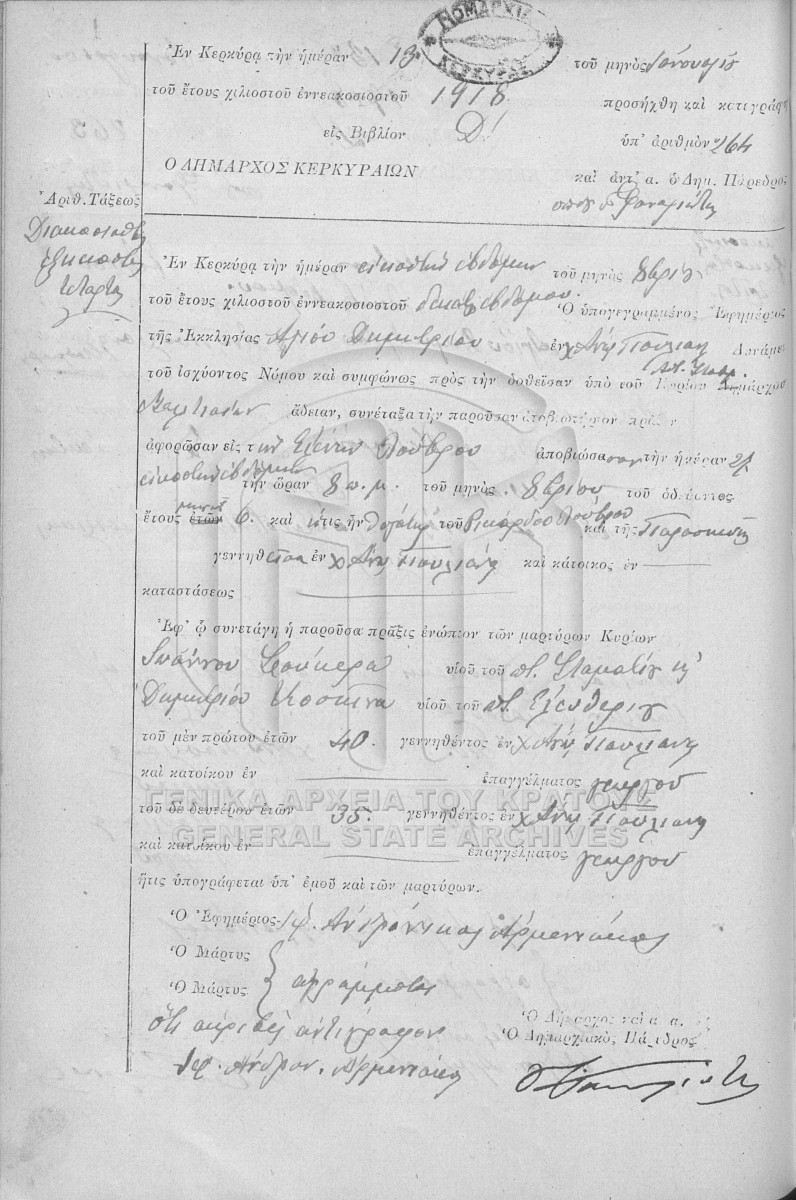 ΝΟΜΑΡΧΙΑ ΚΕΡΚΥΡΑΣ
Ἐν Κερκύρᾳ τὴν ἡμέραν 13 τοῦ μηνὸς Ἰανουαρίου
τοῦ ἔτους χιλιοστοῦ ἐννεακοσιοστοῦ 1918 προσήχθη καὶ κατεγράφη
εἰς Βιβλίον Δ' ὑπ' ἀριθμὸν 264
Ο ΔΗΜΑΡΧΟΣ ΚΕΡΚΥΡΑΙΩΝ καὶ ἀντ' α. ὁ Δημ. Πάρεδρος
Ἀριθ. Τάξεως
Διακοσιοστὴ
ἑξηκοστὴ
τετάρτη
Ἐν Κερκύρᾳ τὴν ἡμέραν εἰκοστὴν ἑβδόμην τοῦ μηνὸς 8βρίου
τοῦ ἔτους χιλιοστοῦ ἐννεακοσιοστοῦ δεκάτου ἑβδόμου. Ὁ ὑπογεγραμμένος Ἐφημέριος
τῆς Ἐκκλησίας Ἁγίου Δημητρίου ἐν Δυνάμει
τοῦ ἰσχύοντος Νόμου καὶ συμφώνως πρὸς τὴν δοθεῖσαν ὑπὸ τοῦ Κυρίου Δημάρχου
ἄδειαν, συνέταξα τὴν παροῦσαν ἀποβιωτήριον πρᾶξιν
ἀφορῶσαν εἰς τὴν Ἑλένην ἀποβιώσασαν τὴν ἡμέραν 27
εἰκοστὴν ἑβδόμην τὴν ὥραν 8 π.μ. τοῦ μηνὸς 8βρίου τοῦ ὁδεύοντος
ἔτους μηνῶν 6. καὶ ἥτις ἦν θυγάτηρ τοῦ Ρικάρδου καὶ τῆς Παρασκευῆς
γεννηθεῖσα ἐν καὶ κάτοικος ἐν
καταστάσεως
Ἐφ' ᾧ συνετάγη ἡ παροῦσα πρᾶξις ἐνώπιον τῶν μαρτύρων Κυρίων
Ἰωάννου υἱοῦ τοῦ ποτ. Σταματίου κ'
Δημητρίου Κοσκινᾶ υἱοῦ τοῦ ποτ. Ἐλευθερίου
τοῦ μὲν πρώτου ἐτῶν 40. γεννηθέντος ἐν
καὶ κατοίκου ἐν ἐπαγγέλματος γεωργοῦ
τοῦ δὲ δευτέρου ἐτῶν 35. γεννηθέντος ἐν
καὶ κατοίκου ἐν ἐπαγγέλματος γεωργοῦ
ΓΕΝΙΚΑ ΑΡΧΕΙΑ ΤΟΥ ΚΡΑΤΟΥΣ
GENERAL STATE ARCHIVES
ἥτις ὑπογράφεται ὑπ' ἐμοῦ καὶ τῶν μαρτύρων.
Ὁ Ἐφημέριος Ἱερ. Ἀνδρόνικος
Ὁ Μάρτυς
Ὁ Μάρτυς ἀγράμματοι
Ὅτι ἀκριβὲς ἀντίγραφον
Ὁ Δήμαρχος καὶ α. α.
Ὁ Δημαρχιακὸς Πάρεδρος
Ἱερ. Ἀνδρον.